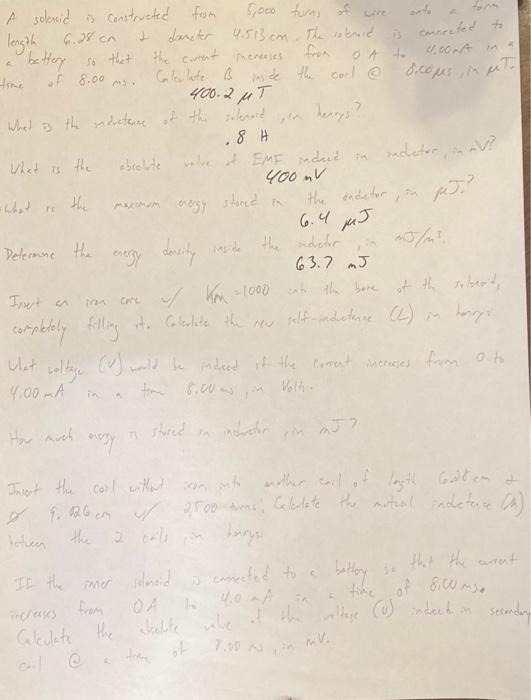 A solenoid is constructed from 5,000 turns of wire onto a form
length 6.28 cm & diameter 4.513 cm. The solenoid is connected to
a battery so that the current increases from 0 A to 4.00 mA in a
time of 8.00 ms. Calculate B inside the coil @ 8.00 μs, in μT.
400.2 μT
What is the inductance of the solenoid, in henrys?
.8 H
What is the absolute value of EMF induced in inductor, in mV?
400 mV
What is the maximum energy stored in the inductor, in μJ?
6.4 μJ
Determine the energy density inside the inductor, in mJ/m³.
63.7 mJ
Insert an iron core w/ Km = 1000 into the bore of the solenoid,
completely filling it. Calculate the new self-inductance (L) in henrys.
What voltage (V) would be induced if the current increases from 0 to
4.00 mA in a time 8.00 ms, in Volts.
How much energy is stored in inductor, in mJ?
Insert the coil without iron into another coil of length 6.28 cm &
Ø 9.026 cm w/ 2,500 turns. Calculate the mutual inductance (M)
between the 2 coils, in henrys.
If the inner solenoid is connected to a battery so that the current
increases from 0 A to 4.0 mA in a time of 8.00 ms.
Calculate the absolute value of the voltage (V) induced in secondary
coil @ a time of 8.00 in mV.